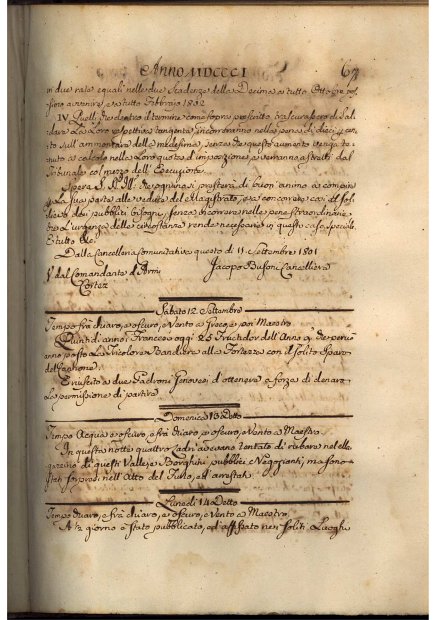 Anno MDCCCI 67
in due rate eguali nelle due Scadenze della Decima a tutto Ottobre pros
simo avvenire, e a tutto Febbrajo 1802
IV. Quelli che dentro il termine come sopra prescritto trascurassero di Sal
dare la Loro respettiva tangente incorreranno nella pena di dieci per cen
to sull'ammontare della medesima, senza che questo aumento venga te
nuto a calcolo nella Loro quota d'imposizione, e verranno astretti dal
Tribunale col mezzo dell'Esecuzione.
Spera S. S. Ill. che ognuno si presterà di buon'animo a compire
La Sua parte alle vedute del Magistrato, e a concorrere così al sol
lievo dei pubblici bisogni, senza incorrere nelle pene straordinarie
che L'urgenza delle circostanze rende necessarie in questo caso speciale
E tutto &c.
Dalla Cancelleria Comunitativa questo dì 11. Settembre 1801
V. dal Comandante d'Armi Jacopo Busoni Cancelliere
Cortez
Sabato 12. Settembre
Tempo frà chiaro, e oscuro, e Vento a Greco, e poi Maestro
Quintidì anno Francese oggi 25 Fructidor dell'Anno 9. che per un
anno posto La Tricolore Bandiera alla Fortezza con il solito Sparo
del Cannone
È riuscito a due Padroni Genovesi d'ottenere a forza di denaro
La permissione di partire
Domenica 13 Detto
Tempo Acqua e oscuro, e frà chiaro, e oscuro, e Vento a Maestro
In questa notte quattro Ladri avevano tentato di rubare nel Ma
gazzino di questi Valle, e Borghini pubblici Negozianti, ma sono
stati sorpresi nell'Atto del Furto, ed arrestati
Lunedì 14 Detto
Tempo chiaro, e frà chiaro, e oscuro, e Vento a Maestro
A giorno è stato pubblicato, ed affissato nei soliti Luoghi